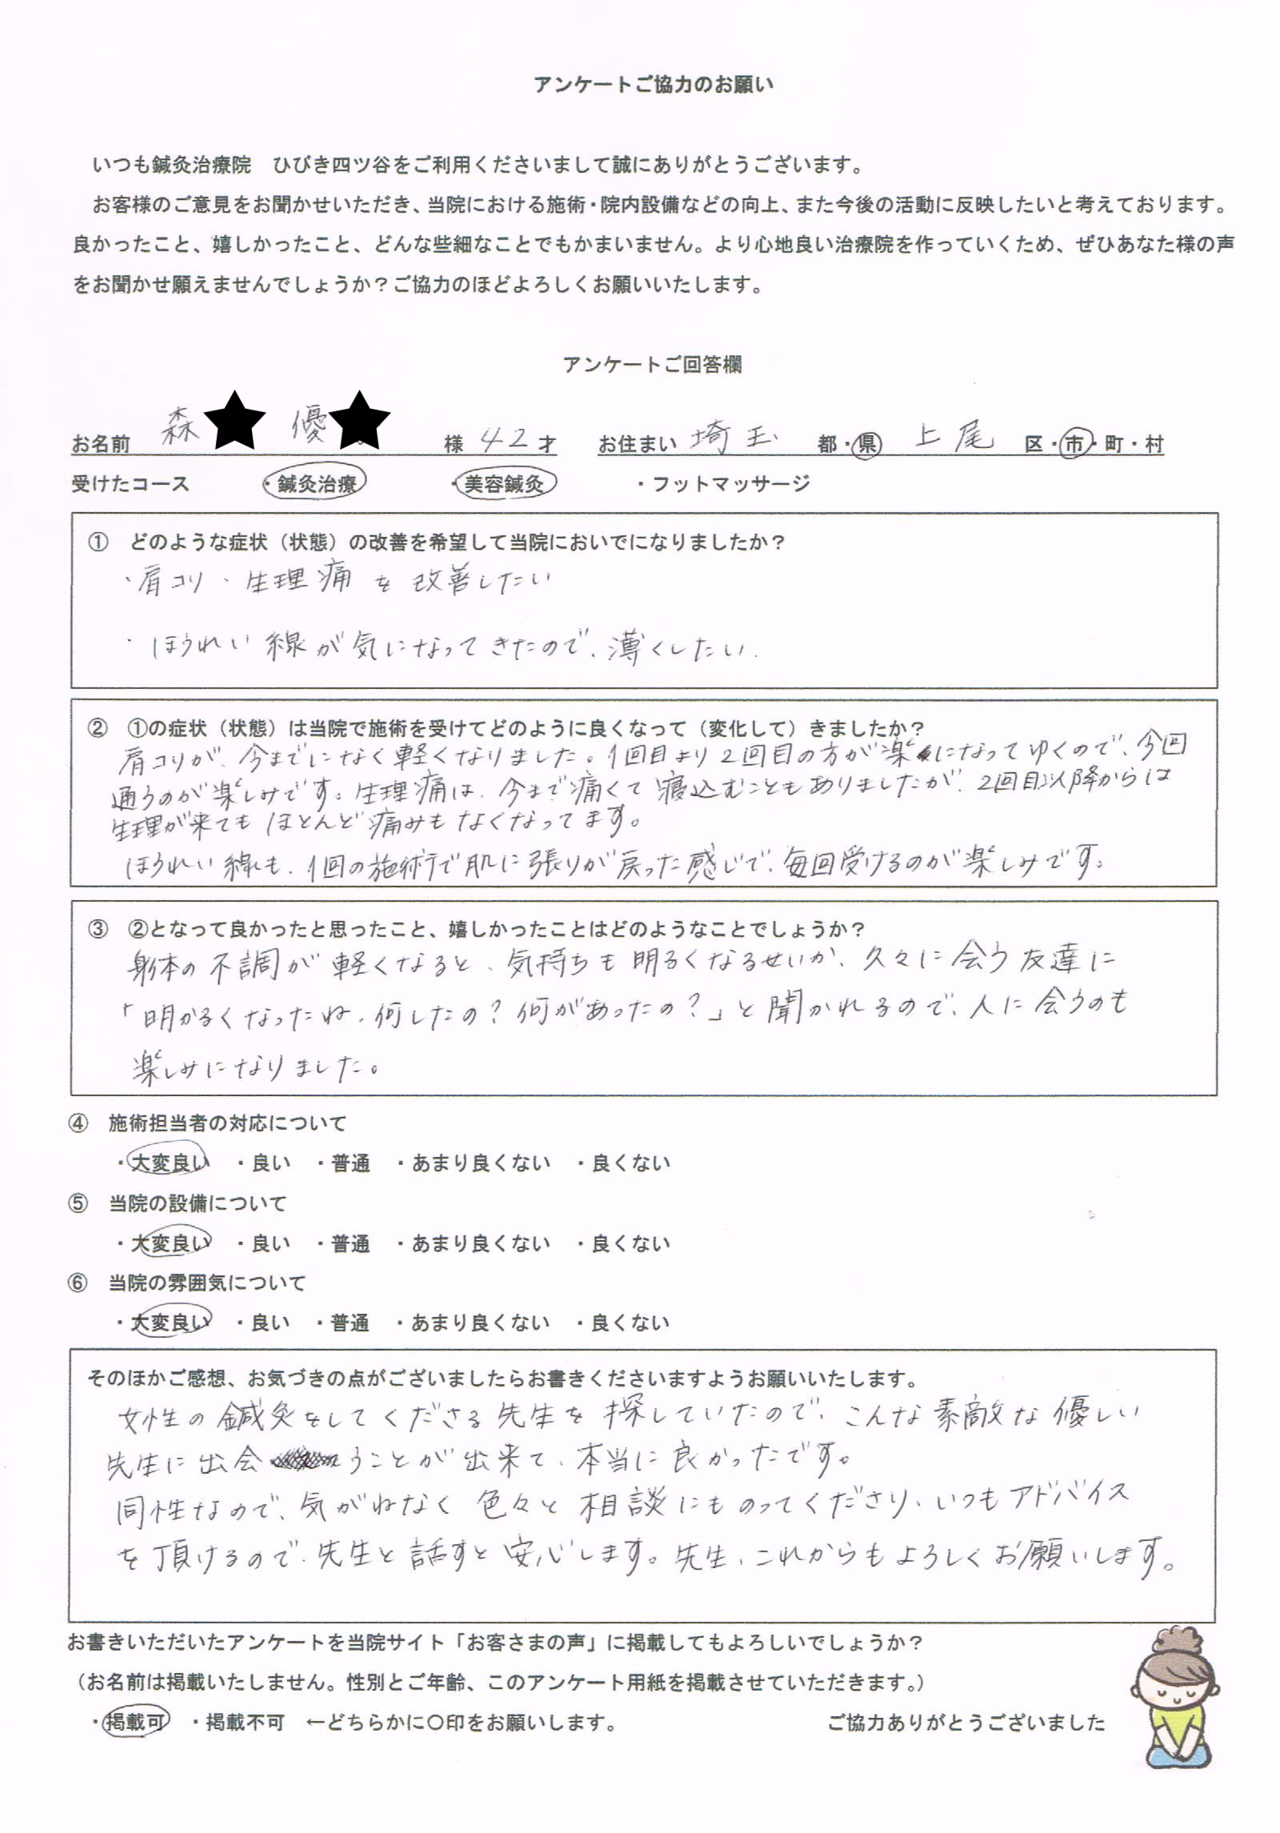 アンケートご協力のお願い
いつも鍼灸治療院　ひびき四ツ谷をご利用くださいまして誠にありがとうございます。
お客様のご意見をお聞かせいただき、当院における施術・院内設備などの向上、また今後の活動に反映したいと考えております。
良かったこと、嬉しかったこと、どんな些細なことでもかまいません。より心地良い治療院を作っていくため、ぜひあなた様の声
をお聞かせ願えませんでしょうか？ご協力のほどよろしくお願いいたします。
アンケートご回答欄
お名前　森★　優★　様　42才　お住まい　埼玉　都・県　上尾　区・市・町・村
受けたコース　・鍼灸治療　・美容鍼灸　・フットマッサージ
①　どのような症状（状態）の改善を希望して当院においでになりましたか？
・肩コリ・生理痛を改善したい
・ほうれい線が気になってきたので、薄くしたい.
②　①の症状（状態）は当院で施術を受けてどのように良くなって（変化して）きましたか？
肩コリが、今までになく軽くなりました。1回目より2回目の方が楽になってゆくので、今回
通うのが楽しみです。生理痛は、今まで痛くて寝込むこともありましたが、2回目以降からは
生理が来てもほとんど痛みもなくなってます。
ほうれい線も、1回の施術で肌に張りが戻った感じで、毎回受けるのが楽しみです。
③　②となって良かったと思ったこと、嬉しかったことはどのようなことでしょうか？
身体の不調が軽くなると、気持ちも明るくなるせいか、久々に会う友達に
「明かるくなったね、何したの？何があったの？」と聞かれるので、人に会うのも
楽しみになりました。
④　施術担当者の対応について
・大変良い　・良い　・普通　・あまり良くない　・良くない
⑤　当院の設備について
・大変良い　・良い　・普通　・あまり良くない　・良くない
⑥　当院の雰囲気について
・大変良い　・良い　・普通　・あまり良くない　・良くない
そのほかご感想、お気づきの点がございましたらお書きくださいますようお願いいたします。
女性の鍼灸をしてくださる先生を探していたので、こんな素敵な優しい
先生に出会うことが出来て、本当に良かったです。
同性なので、気がねなく色々と相談にものってくださり、いつもアドバイス
を頂けるので、先生と話すと安心します。先生、これからもよろしくお願いします。
お書きいただいたアンケートを当院サイト「お客さまの声」に掲載してもよろしいでしょうか？
（お名前は掲載いたしません。性別とご年齢、このアンケート用紙を掲載させていただきます。）
・掲載可　・掲載不可　←どちらかに〇印をお願いします。　ご協力ありがとうございました